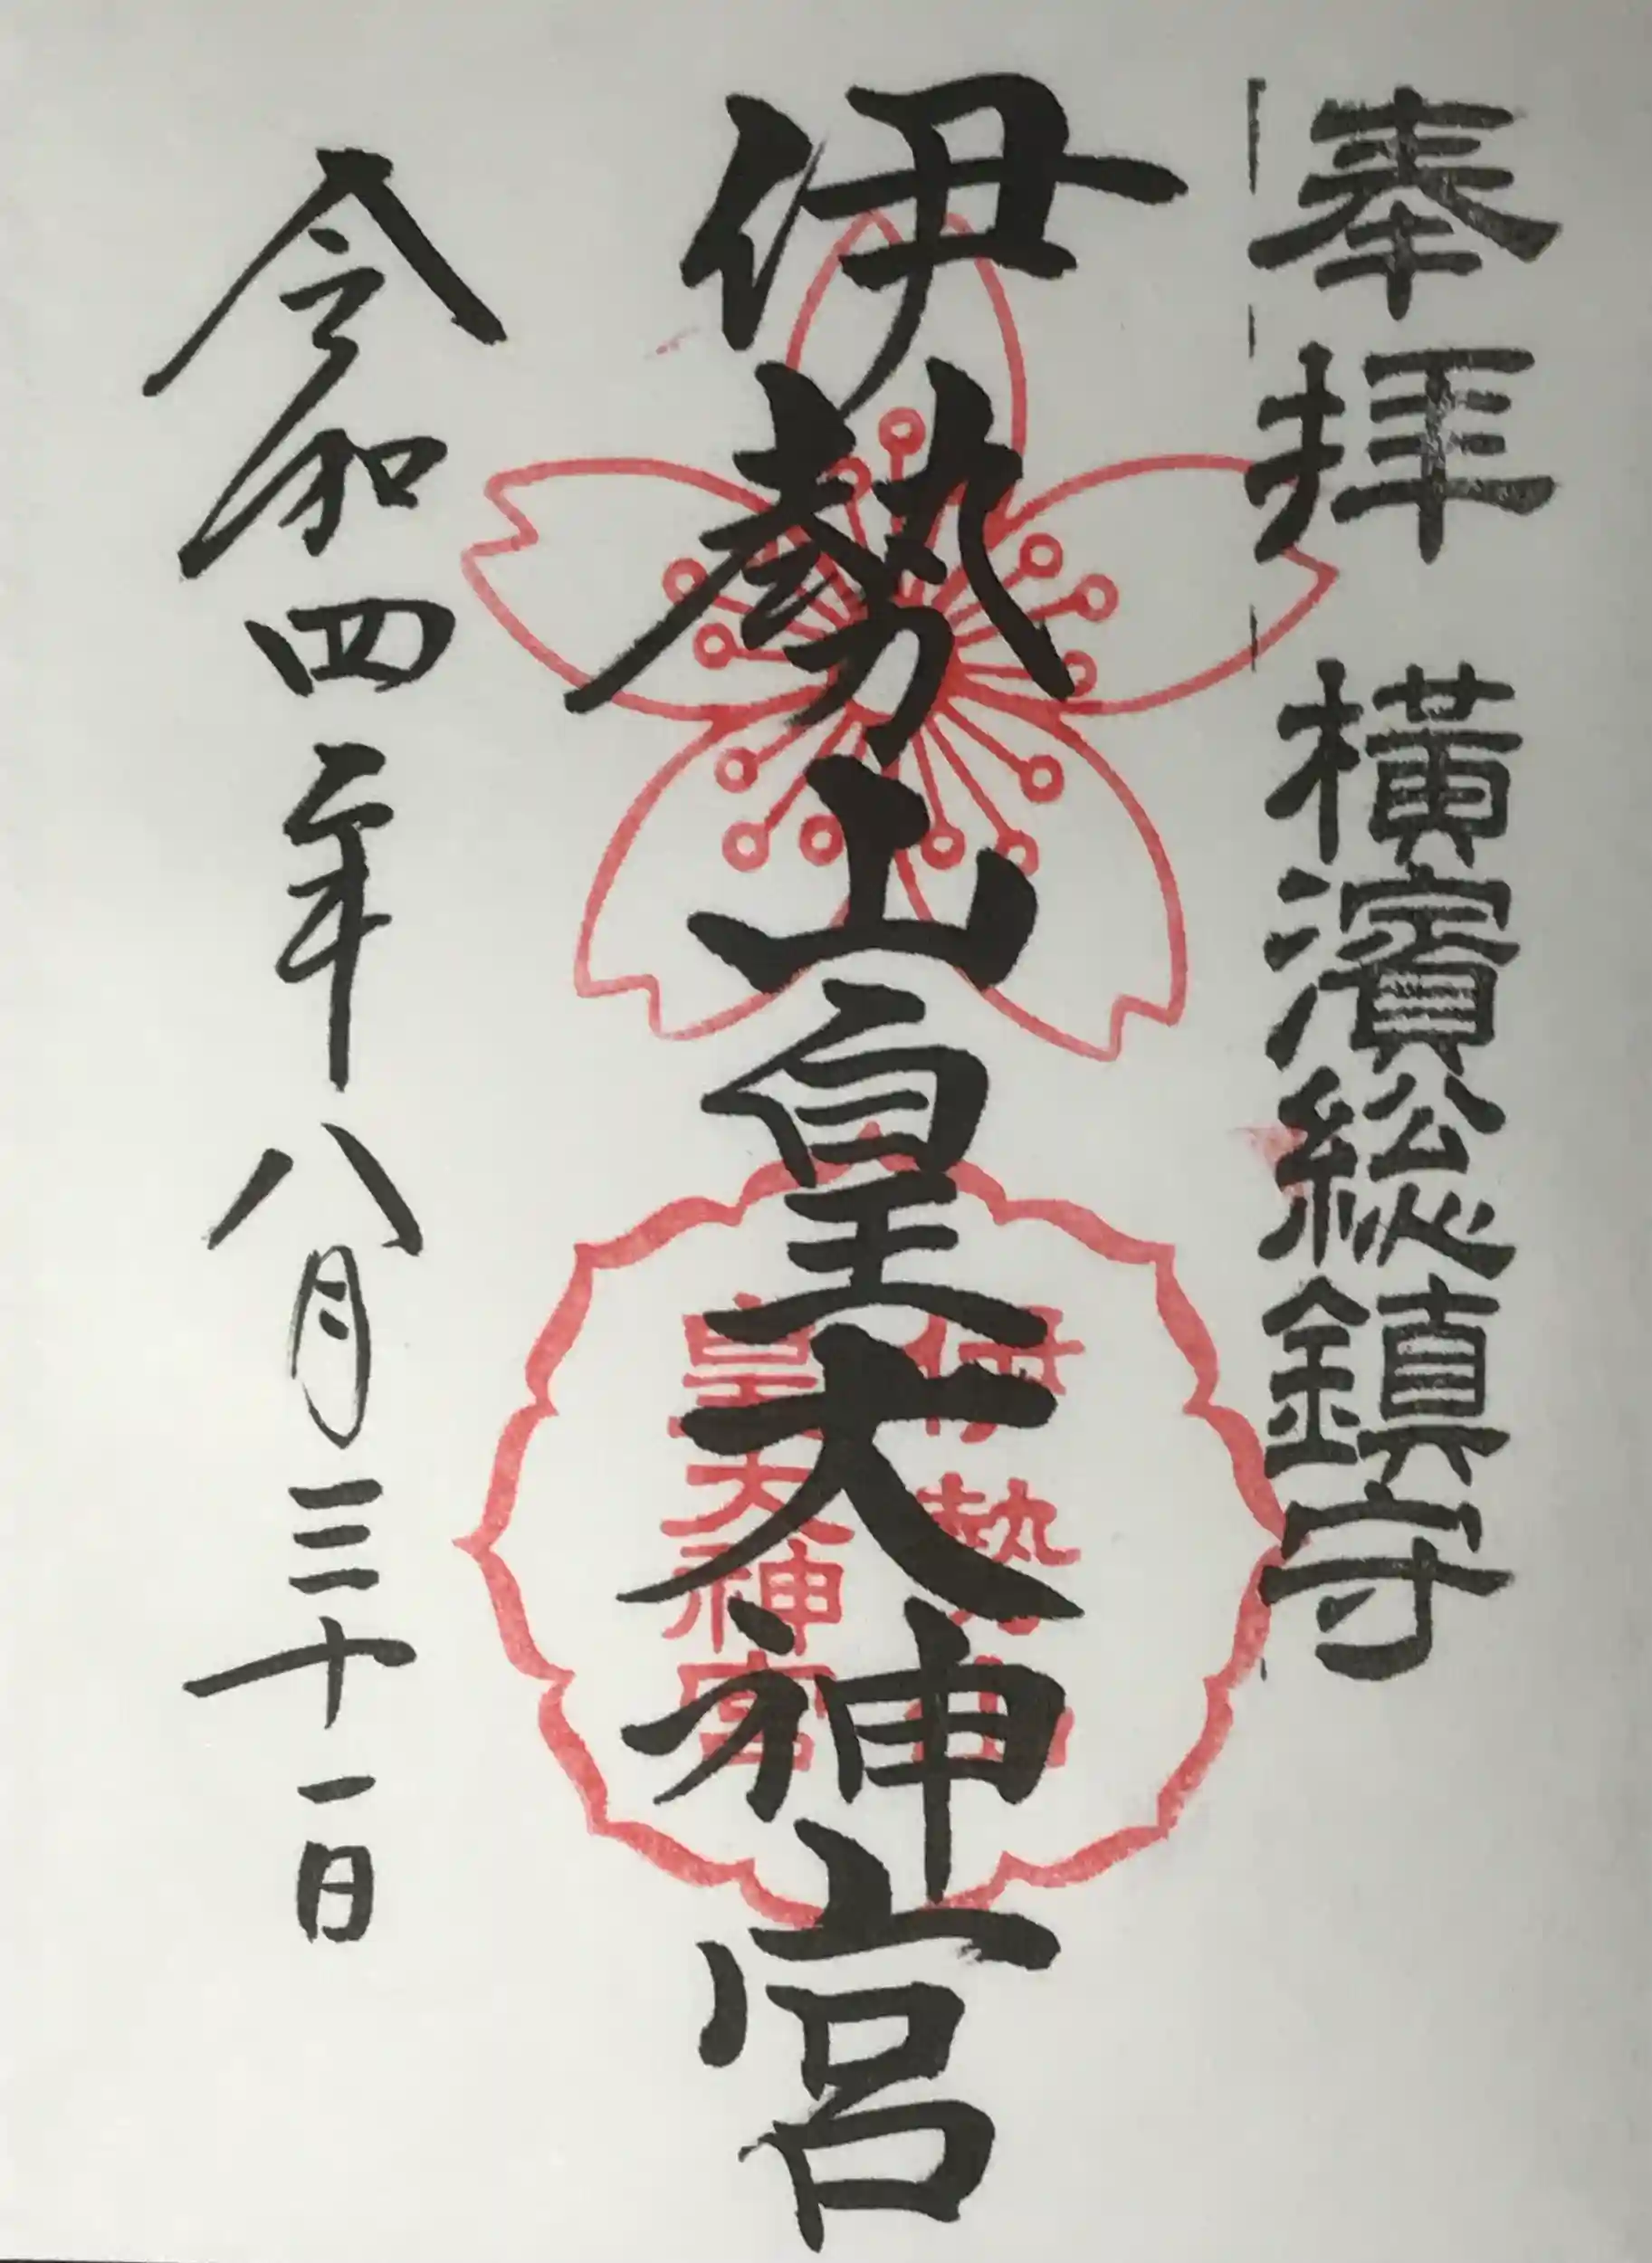 奉拝 橫濱総鎮守
伊勢山皇大神宮
伊勢山
皇大神宮
令和四年八月三十一日